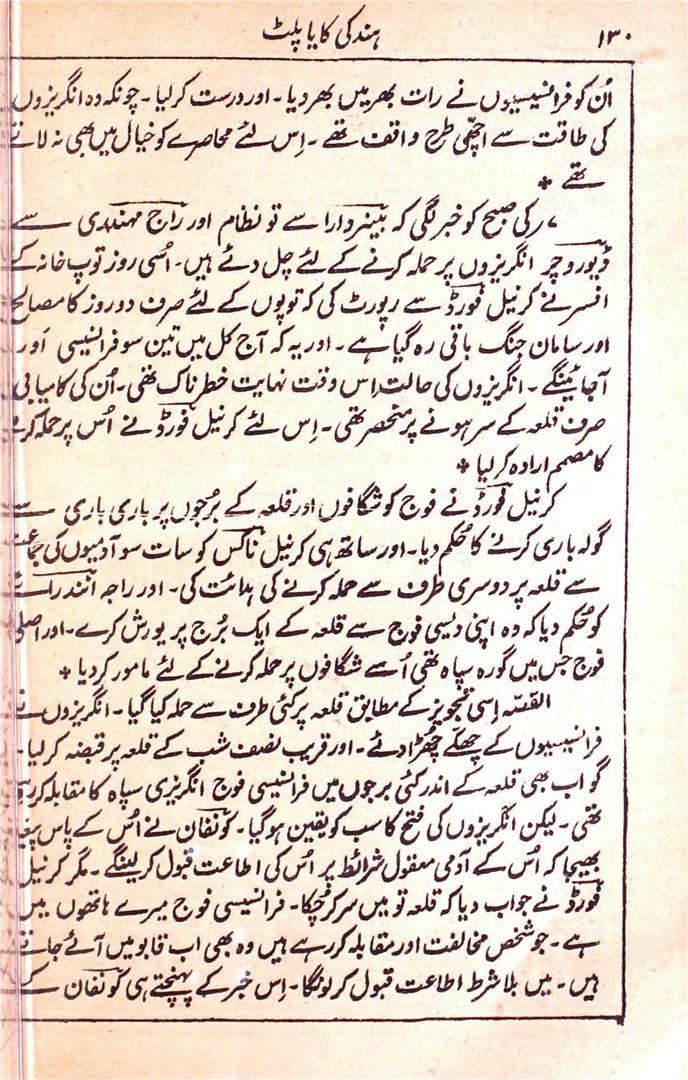 ۱۳۰
ہند کی کایا پلٹ
اُن کو فرانسیسیوں نے رات بھر میں بھر دیا۔ اور درست کر لیا۔ چونکہ وہ انگریزوں
کی طاقت سے اچھی طرح واقف تھے۔ اِس لئے محاصرے کو خیال میں بھی نہ لاتے
تھے *
۷ کی صبح کو خبر لگی کہ بیزوارا سے تو نظام اور راج مہندری سے
ڈیوروچر انگریزوں پر حملہ کرنے کے لئے چل دئے ہیں۔ اُسی روز توپ خانہ کے
افسر نے کرنیل فورڈ سے رپورٹ کی کہ توپوں کے لئے صرف دو روز کا مصالح
اور سامان جنگ باقی رہ گیا ہے۔ اور یہ کہ آج کل میں تین سو فرانسیسی اَور
آجائینگے۔ انگریزوں کی حالت اِس وقت نہایت خطرناک تھی۔ اُن کی کامیابی
صرف قلعہ کے سر ہونے پر منحصر تھی۔ اِس لئے کرنیل فورڈ نے اُس پر حملہ کرنے
کا مصمم ارادہ کر لیا *
کرنیل فورڈ نے فوج کو شگافوں اور قلعہ کے بُرجوں پر باری باری سے
گولہ باری کرنے کا حُکم دیا۔ اور ساتھ ہی کرنیل ناکس کو سات سو آدمیوں کی جماعت
سے قلعہ پر دوسری طرف سے حملہ کرنے کی ہدائت کی۔ اور راجہ انندراے
کو حُکم دیا کہ وہ اپنی دیسی فوج سے قلعہ کے ایک بُرج پر یورش کرے۔ اور اصلی
فوج جس میں گورہ سپاہ تھی اُسے شگافوں پر حملہ کرنے کے لئے مامور کر دیا *
القصّہ اِسی تجویز کے مطابق قلعہ پر کئی طرف سے حملہ کیا گیا۔ انگریزوں نے
فرانسیسیوں کے چھکّے چھُڑا دئے۔ اور قریب نصف شب کے قلعہ پر قبضہ کر لیا۔
گو اب بھی قلعہ کے اندر کئی برجوں میں فرانسیسی فوج انگریزی سپاہ کا مقابلہ کر رہی
تھی۔ لیکن انگریزوں کی فتح کا سب کو یقین ہو گیا۔ کونفان نے اُس کے پاس پیغام
بھیجا کہ اُس کے آدمی معقول شرائط پر اُس کی اطاعت قبول کر لینگے۔ مگر کرنیل
فورڈ نے جواب دیا کہ قلعہ تو میں سر کر چُکا۔ فرانسیسی فوج میرے ہاتھوں میں
ہے۔ جو شخص مخالفت اور مقابلہ کر رہے ہیں وہ بھی اب قابو میں آئے جاتے
ہیں۔ میں بلا شرط اطاعت قبول کر لونگا۔ اِس خبر کے پہنچتے ہی کونفان کے